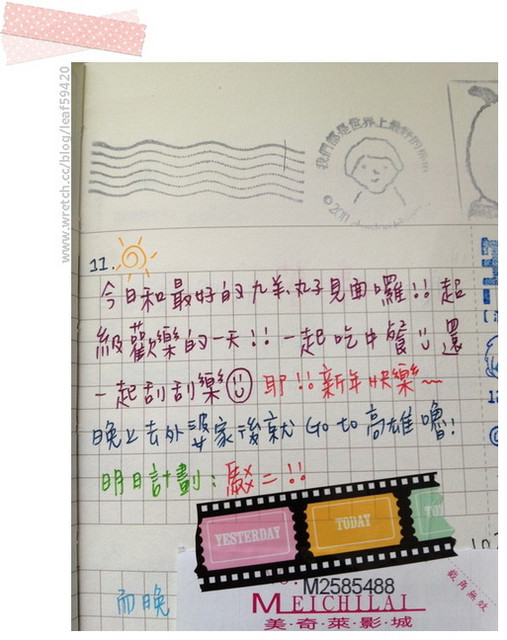 www.wretch.cc/blog/leaf59420
我們都是世界上最好的
©2011
11.
今日和最好的九羊、丸子見面囉!! 起
級歡樂的一天!! 一起吃中餐 還
一起刮刮樂 耶!! 新年快樂~~
晚上去外婆家後就 Go to 高雄嚕!
明日計劃: 駁二!!
YESTERDAY
TODAY
M2585488
MEICHILAI
美·奇·萊·影·城
截角無效
而晚